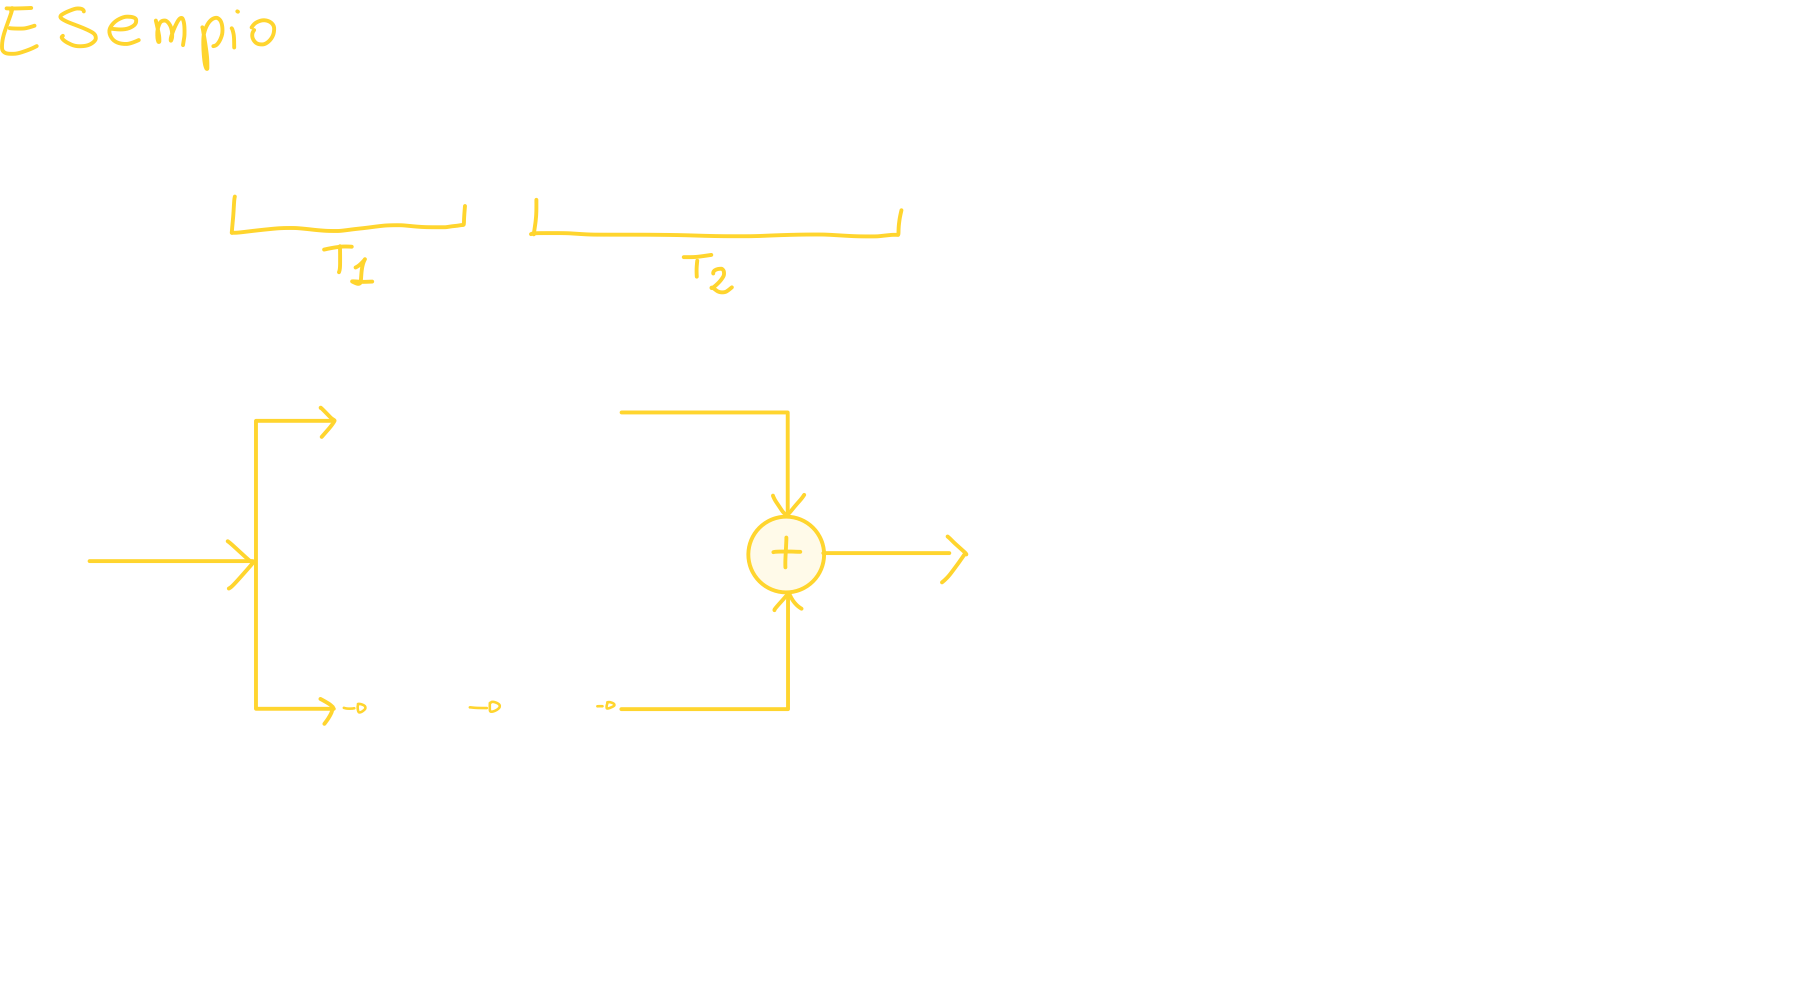 ESempio
T1 T2
+